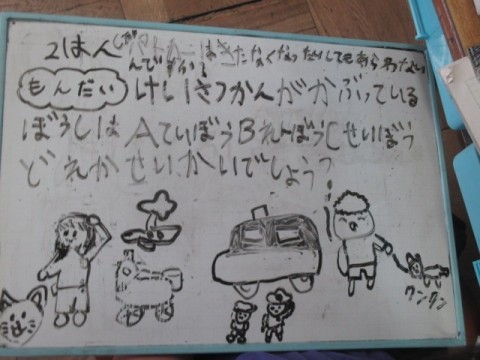 パトカーはきたなくなったりしてもあらわない
んですか！
もんだい けいさつかんがかぶっている
ぼうしは Aていぼう Bえーぼう Cせいぼう
どれがせいかいでしょう？
ワンワン